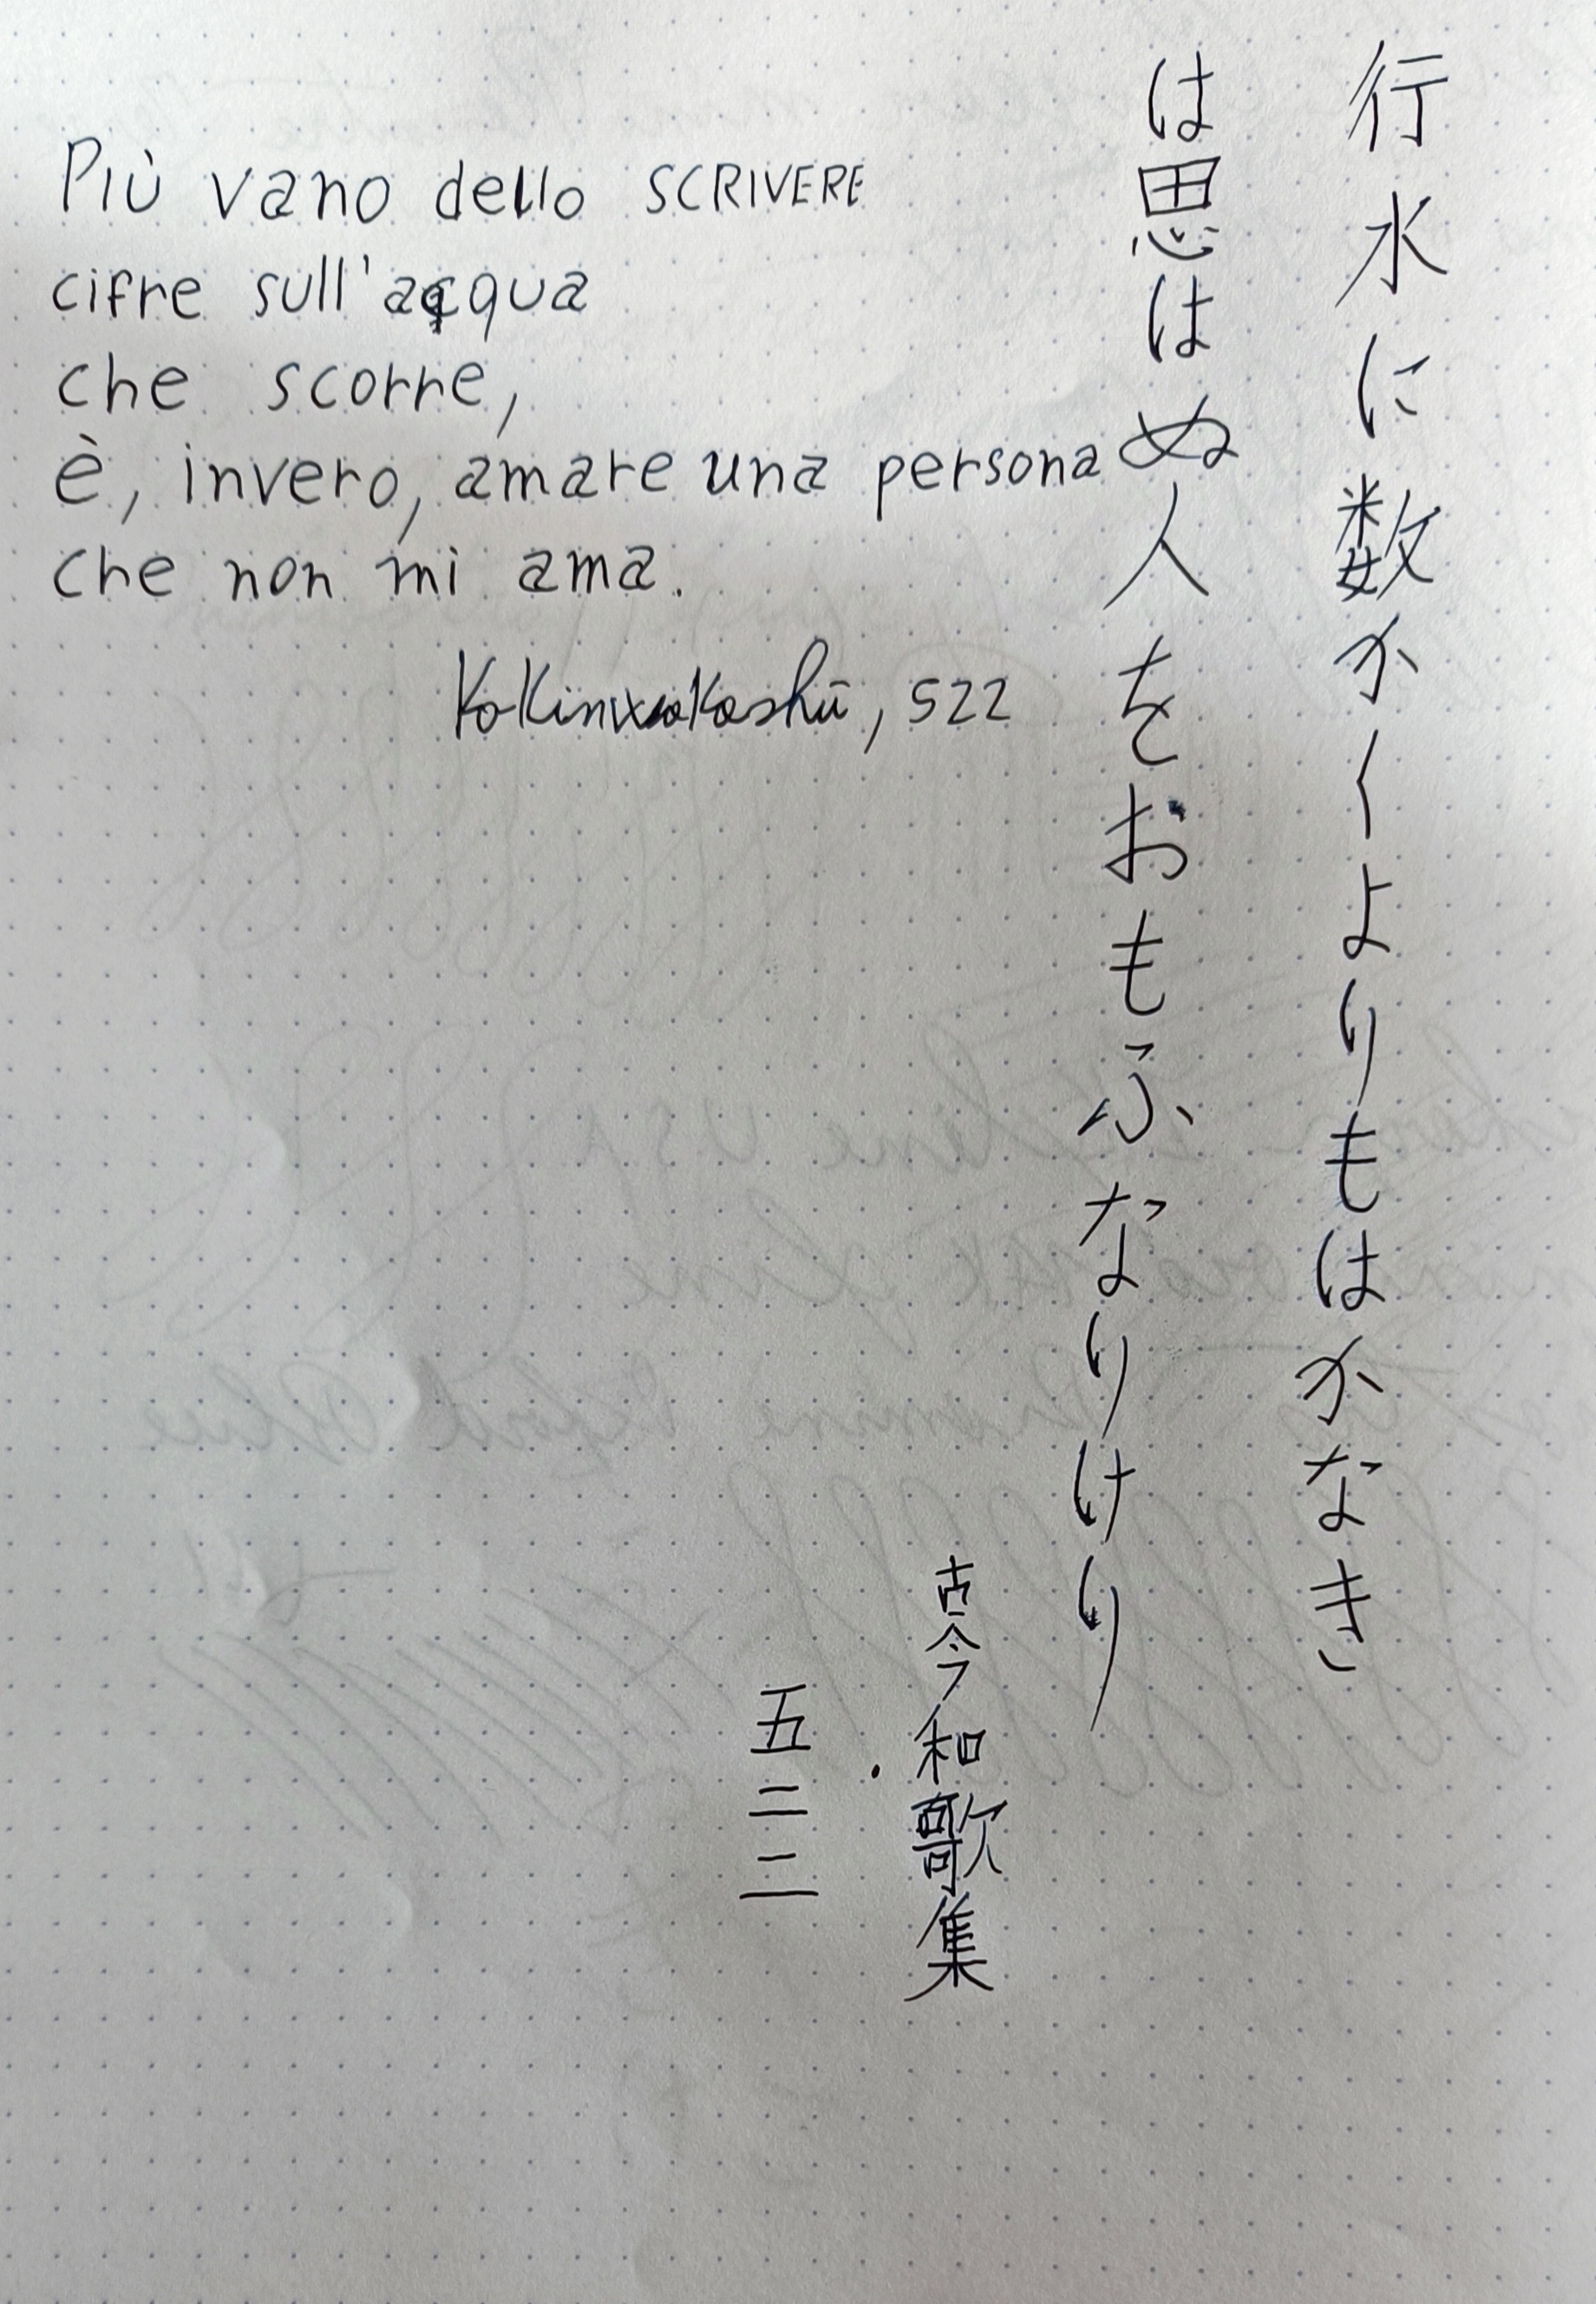 Più vano dello SCRIVERE
cifre sull'acqua
che scorre,
è, invero, amare una persona
che non mi ama.
Kokinwakashū, 522
行水に数かくよりもはかなき
は思はぬ人をおもふなりけり
古今和歌集
・五二二